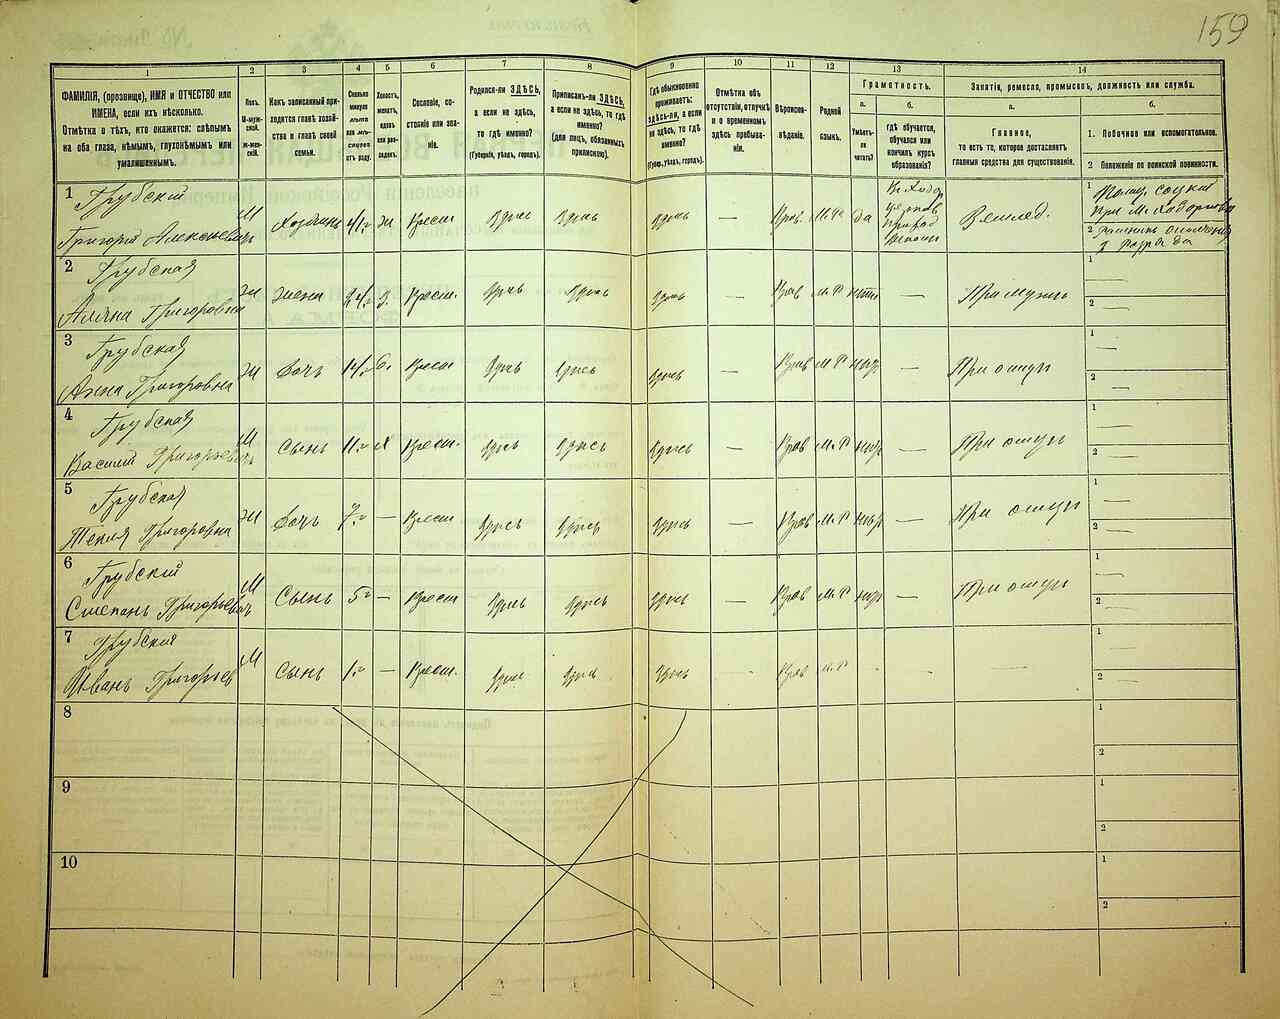 159
1 2 3 4 5 6 7 8 9 10 11 12 13 14
ФАМИЛІЯ, (прозвище), ИМЯ и ОТЧЕСТВО или
ИМЕНА, если ихъ нѣсколько.
Отмѣтка о тѣхъ, кто окажется: слѣпымъ
на оба глаза, нѣмымъ, глухонѣмымъ или
умалишеннымъ.
Полъ.
М-мужской.
ж-женскій.
Какъ записанный приходится главѣ хозяйства и главѣ своей семьи.
Сколько минуло лѣтъ или мѣсяцевъ отъ роду.
Холостъ, женатъ, вдовъ или разведенъ.
Сословіе, состояніе или званіе.
Родился-ли ЗДѢСЬ,
а если не здѣсь,
то гдѣ именно?
(Губернія, уѣздъ, городъ).
Приписанъ-ли ЗДѢСЬ,
а если не здѣсь, то гдѣ
именно?
(для лицъ, обязанныхъ
припискою).
Гдѣ обыкновенно
проживаетъ:
ЗДѢСЬ-ли, а если
не здѣсь, то гдѣ
именно?
(Губер., уѣздъ, городъ).
Отмѣтка объ
отсутствіи, отлучкѣ
и о временномъ
здѣсь пребываніи.
Вѣроисповѣданіе.
Родной
языкъ.
Грамотность.
а.
Умѣетъ-ли
читать?
б.
гдѣ обучается,
обучался или
кончилъ курсъ
образованія?
Занятіе, ремесло, промыселъ, должность или служба.
а.
Главное,
то есть то, которое доставляетъ
главныя средства для существованія.
б.
1. Побочное или вспомогательное.
2 Положеніе по воинской повинности.
1 Грубскій
Григорій Алексѣевичъ М Хозяинъ 41 ж Крест Здѣсь Здѣсь Здѣсь — Прав. М. Р да Землед.
2 Грубская
Григоровна ж жена Крест. Здѣсь Здѣсь Здѣсь — Прав М. Р нѣтъ — При мужѣ 1 — 2 —
3 Грубская
Анна Григоровна ж Дочь 14 Крест Здѣсь Здѣсь Здѣсь — Прав М. Р — При отцѣ 1 — 2 —
4 Грубская
Василій Григорьевичъ М Сынъ 11 Х Крест. Здѣсь Здѣсь Здѣсь — Прав М. Р — При отцѣ 1 — 2 —
5 Грубская
Текля Григоровна ж Дочь 7 — Крест Здѣсь Здѣсь Здѣсь — Прав М. Р — При отцѣ 1 — 2 —
6 Грубскій
Степанъ Григорьевичъ М Сынъ 5 — Крест Здѣсь Здѣсь Здѣсь — Прав М. Р — При отцѣ 1 — 2 —
7 Грубскій
Иванъ Григорьев М Сынъ 1 — Крест. Здѣсь Здѣсь Здѣсь — Прав М. Р — 1 — 2 —
8 1 2
9 1 2
10 1 2